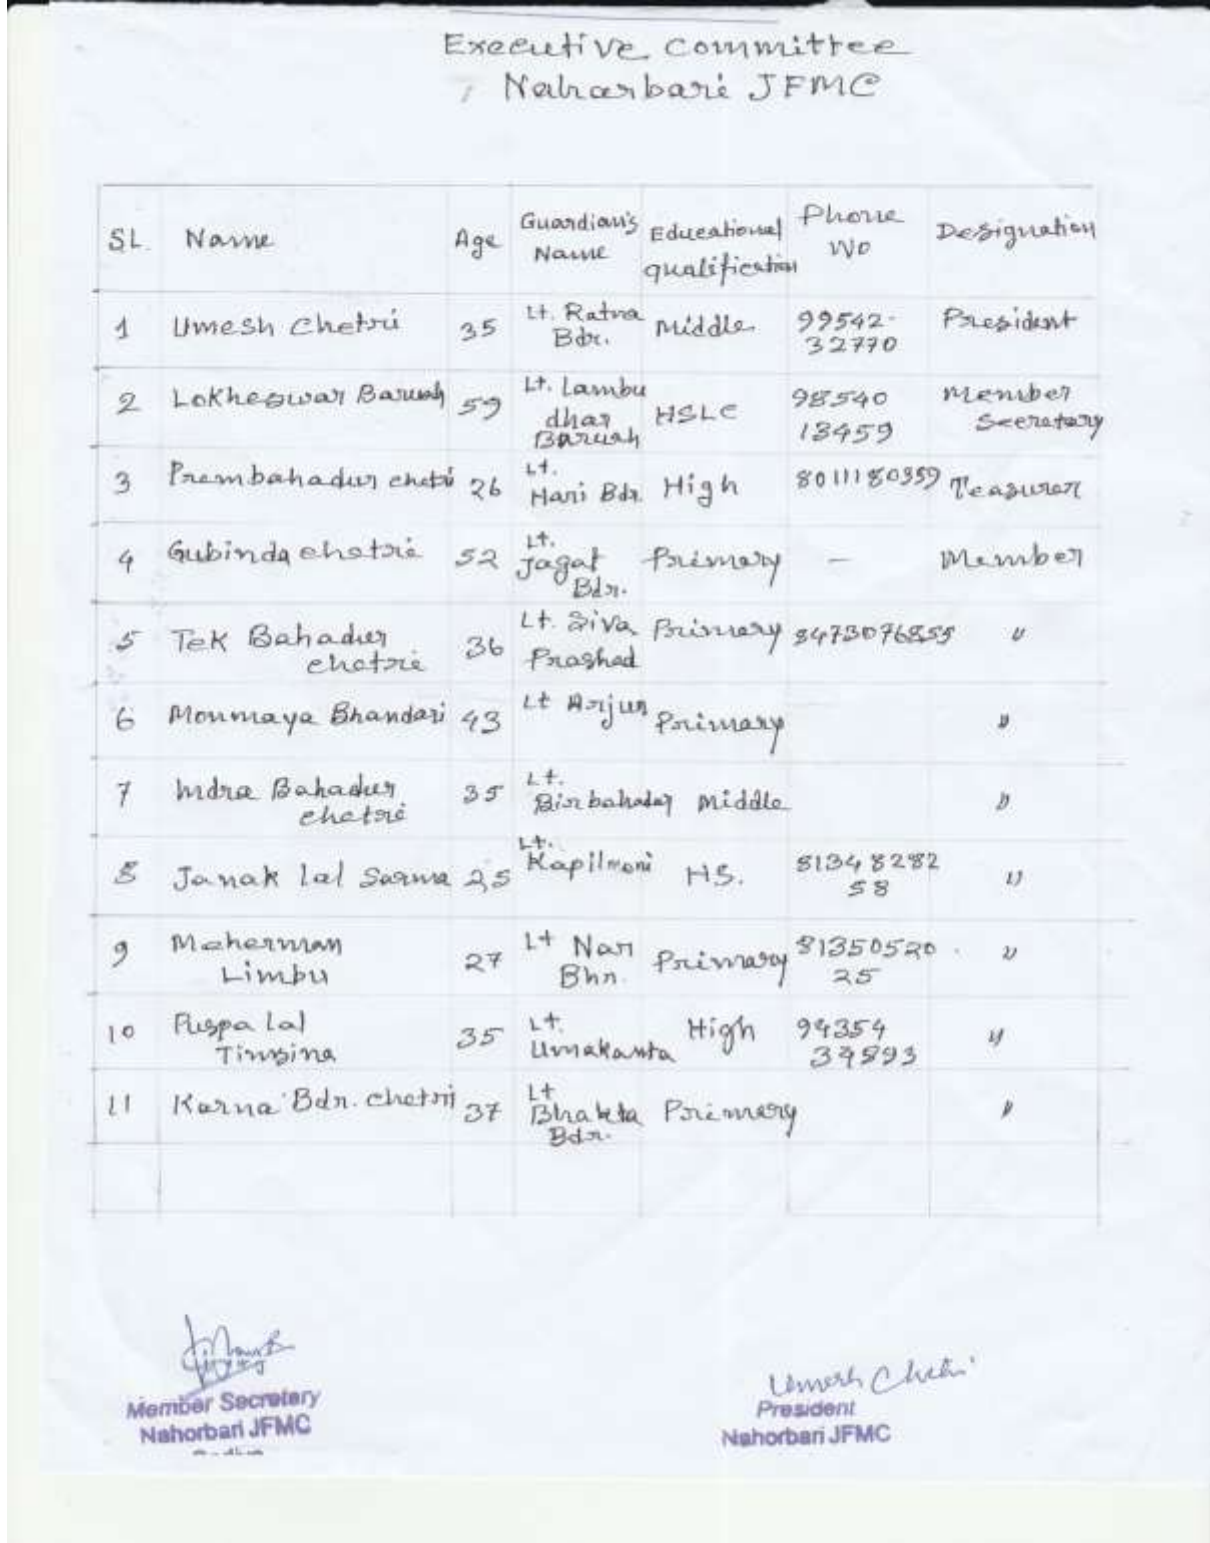 Executive Committee
Naharbari JFMC
SL. Name Age Guardian's Name Educational qualification Phone No Designation
1 Umesh Chetri 35 Lt. Ratna Bdr. Middle 99542-32770 President
2 Lokheswar Baruah 59 Lt. Lambudhar Baruah HSLC 98540 13459 Member Secretary
3 Prembahadur chetri 26 Lt. Hari Bdr. High 8011180359 Teasurer
4 Gubinda chetrie 52 Lt. Jagat Bdr. Primary – Member
5 Tek Bahadur chetrie 36 Lt. Siva Prashad Primary 8473076855 "
6 Monmaya Bhandari 43 Lt Arjun Primary "
7 Indra Bahadur chetrie 35 Lt. Birbahadur Middle "
8 Janak lal Sarma 25 Lt. Kapilmoni HS. 8134828258 "
9 Meherman Limbu 27 Lt Nar Bhn. Primary 8135052025 "
10 Puspa lal Timsina 35 Lt. Umakanta High 94354 34893 "
11 Karna Bdr. chetri 37 Lt Bhakta Bdr. Primery "
Umesh Chetri
Member Secretary
President
Nahorbari JFMC
Nahorbari JFMC